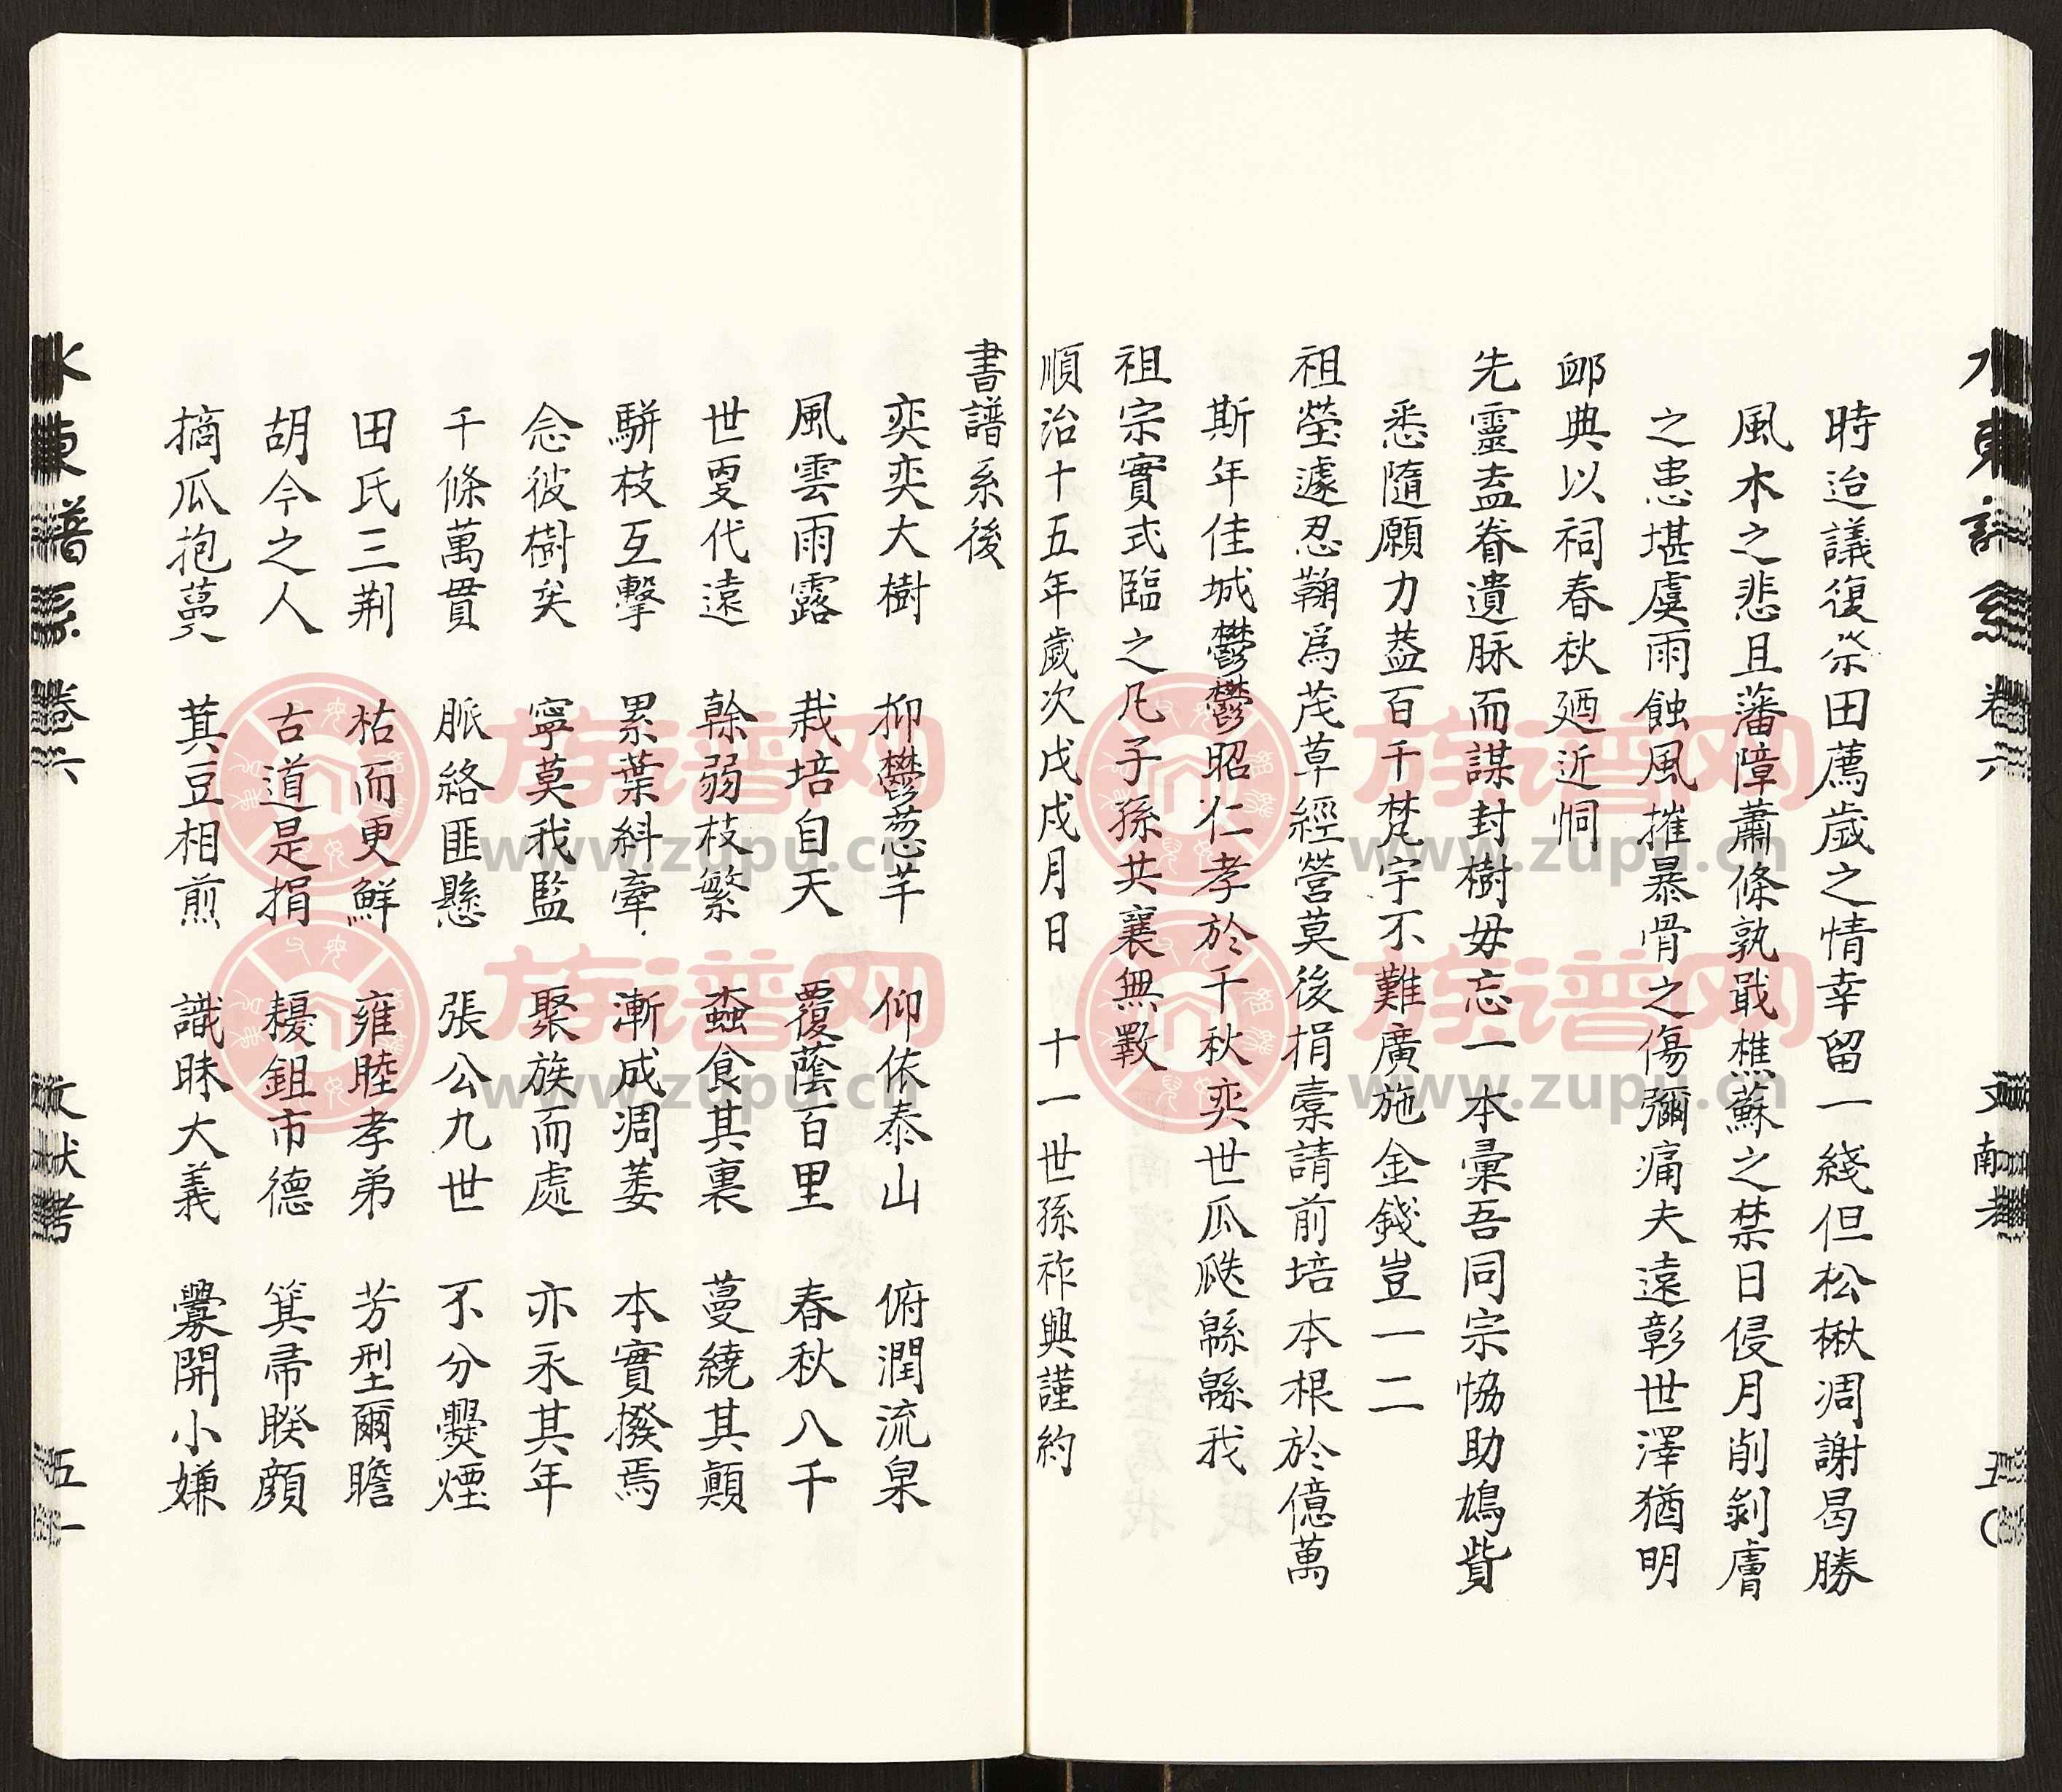 水東譜系 卷六 文献考 五〇
時迨議復祭田薦歲之情幸留一綫但松楸凋謝曷勝
風木之悲且藩障蕭條孰戢樵蘇之禁日侵月削剝膚
之患堪虞雨蝕風摧暴骨之傷彌痛夫遠彰世澤猶明
卹典以祠春秋廼近恫
先靈盍眷遺脉而謀封樹毋忘一本彙吾同宗恊助鳩貲
悉隨願力蓋百千梵宇不難廣施金錢豈一二
祖塋遽忍鞠爲茂草經營莫後捐橐請前培本根於億萬
斯年佳城鬱鬱昭仁孝於千秋奕世瓜瓞緜緜我
祖宗實式臨之凡子孫共襄無斁
順治十五年歲次戊戌月日 十一世孫祚興謹約
書譜系後
奕奕大樹 抑鬱葱芊 仰依泰山 俯潤流泉
風雲雨露 栽培自天 覆蔭百里 春秋八千
世夐代遠 榦弱枝繁 蟊食其裏 蔓繞其顛
駢枝互擊 累葉糾牽 漸成凋萎 本實撥焉
念彼樹矣 寧莫我監 聚族而處 亦永其年
千條萬貫 脈絡匪懸 張公九世 不分爨煙
田氏三荆 枯而更鮮 雍睦孝弟 芳型爾瞻
胡今之人 古道是捐 耰鉏市德 箕帚睽顔
摘瓜抱蔓 萁豆相煎 識昧大義 釁開小嫌
水東譜系 卷六 文献考 五一
族谱网
www.zupu.cn
族谱网
www.zupu.cn
族谱网
www.zupu.cn
族谱网
www.zupu.cn